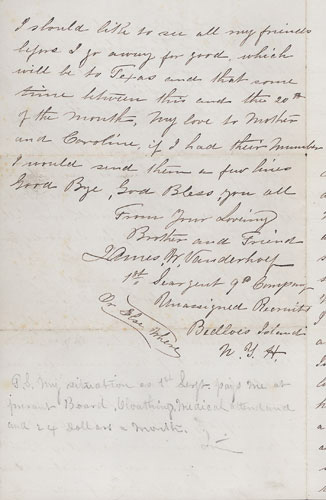 I should like to see all my friends
before I go away for good, which
will be to Texas and that some
time between this and the 20th
of the month, My love to Mother
and Caroline, if I had their Number
I would send them a few lines
Good Bye, God Bless, you all
From Your Loveing
Brother and Friend
James W. Vanderhoef
1st Seargent 9th Company
Unassigned Recruits
Bedloes Island
N. Y. H.
P.S. My situation as 1st Sergt pays me at
present Board, Cloathing, Medical attendand
and 24 dollars a Month.